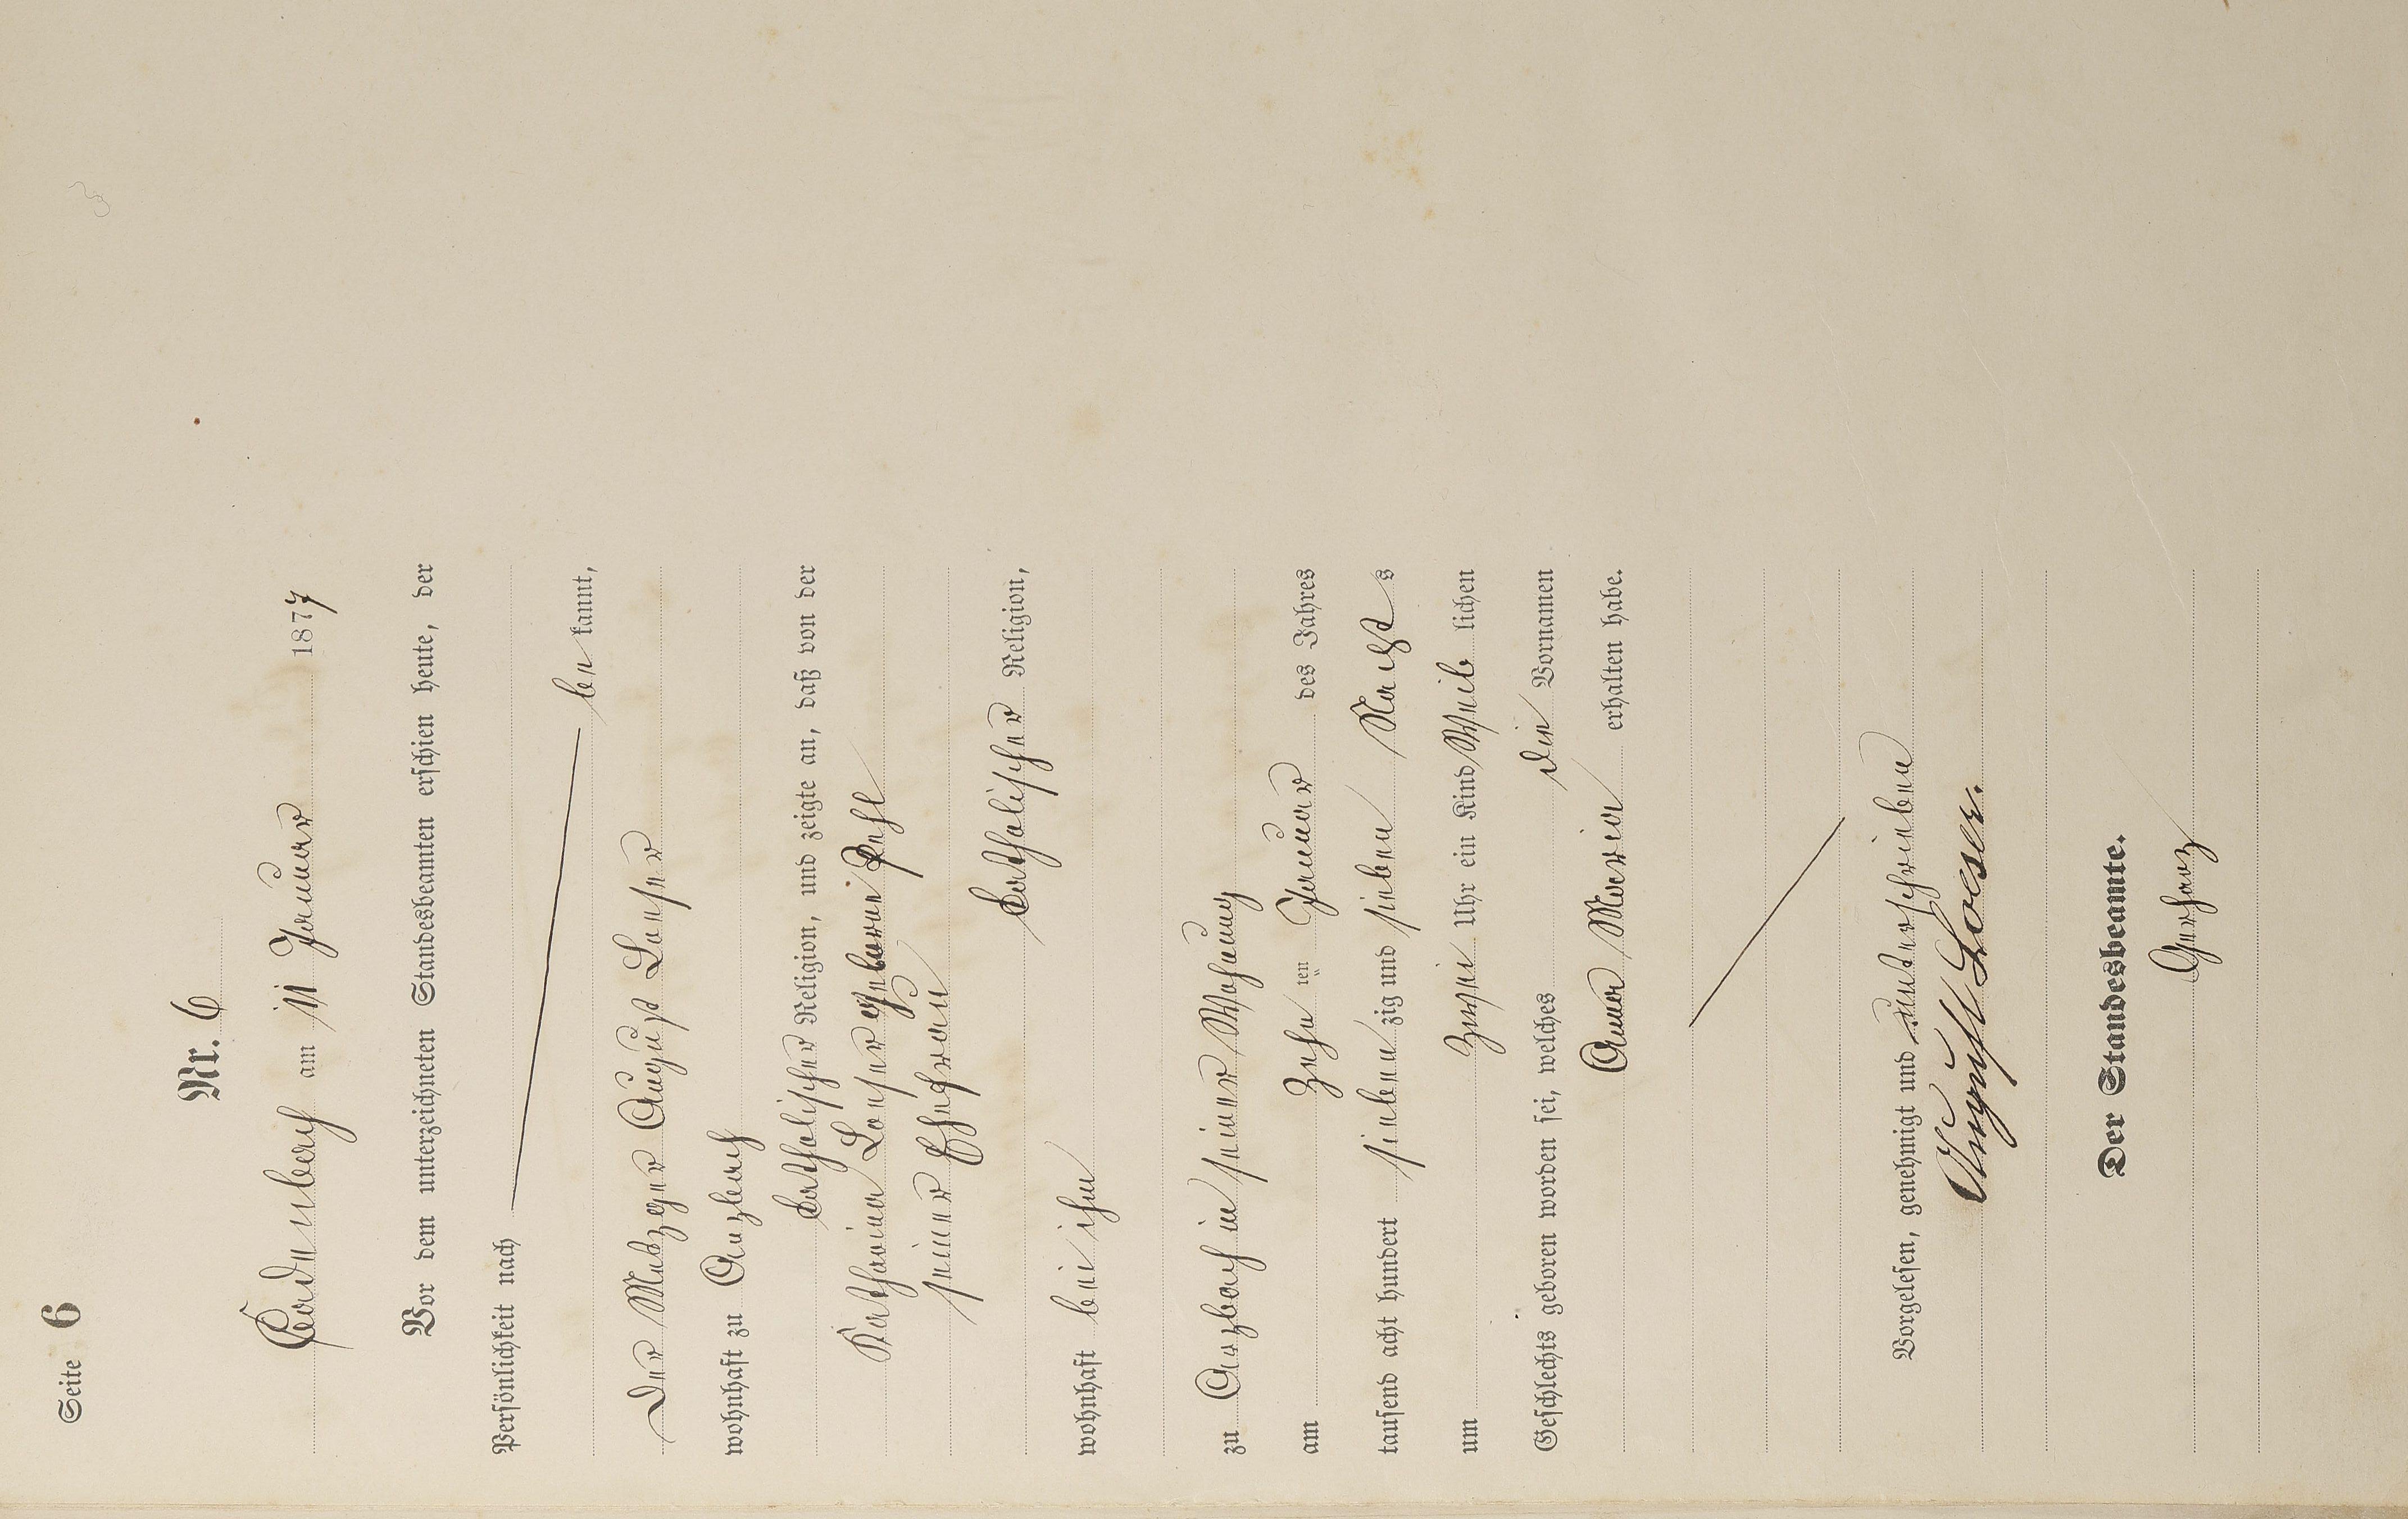 Seite 6
Nr. 6
Cadenbach am 11 Januar 1877
Vor dem unterzeichneten Standesbeamten erschien heute, der
Persönlichkeit nach
be kannt,
Der Metzger August Loeser
wohnhaft zu Arzbach
katholischer Religion, und zeigte an, daß von der
Katharina Loeser geborene Pehl
seiner Ehefrau
katholischer Religion,
wohnhaft bei ihm
zu Arzbach in seiner Wohnung
am Zehn ten Januar des Jahres
tausend acht hundert sieben zig und sieben Nacht s
um Zwei Uhr ein Kind Weib lichen
Geschlechts geboren worden sei, welches die Vornamen
Anna Maria erhalten habe.
Vorgelesen, genehmigt und unterschrieben
August Loeser.
Der Standesbeamte.
Gerharz